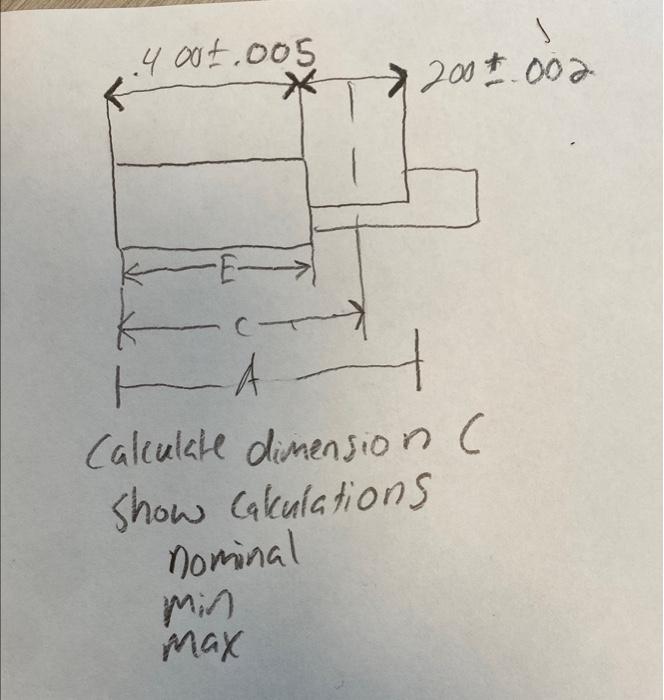 .400±.005
200±.002
E
C
A
Calculate dimension C
Show Calculations
nominal
min
max